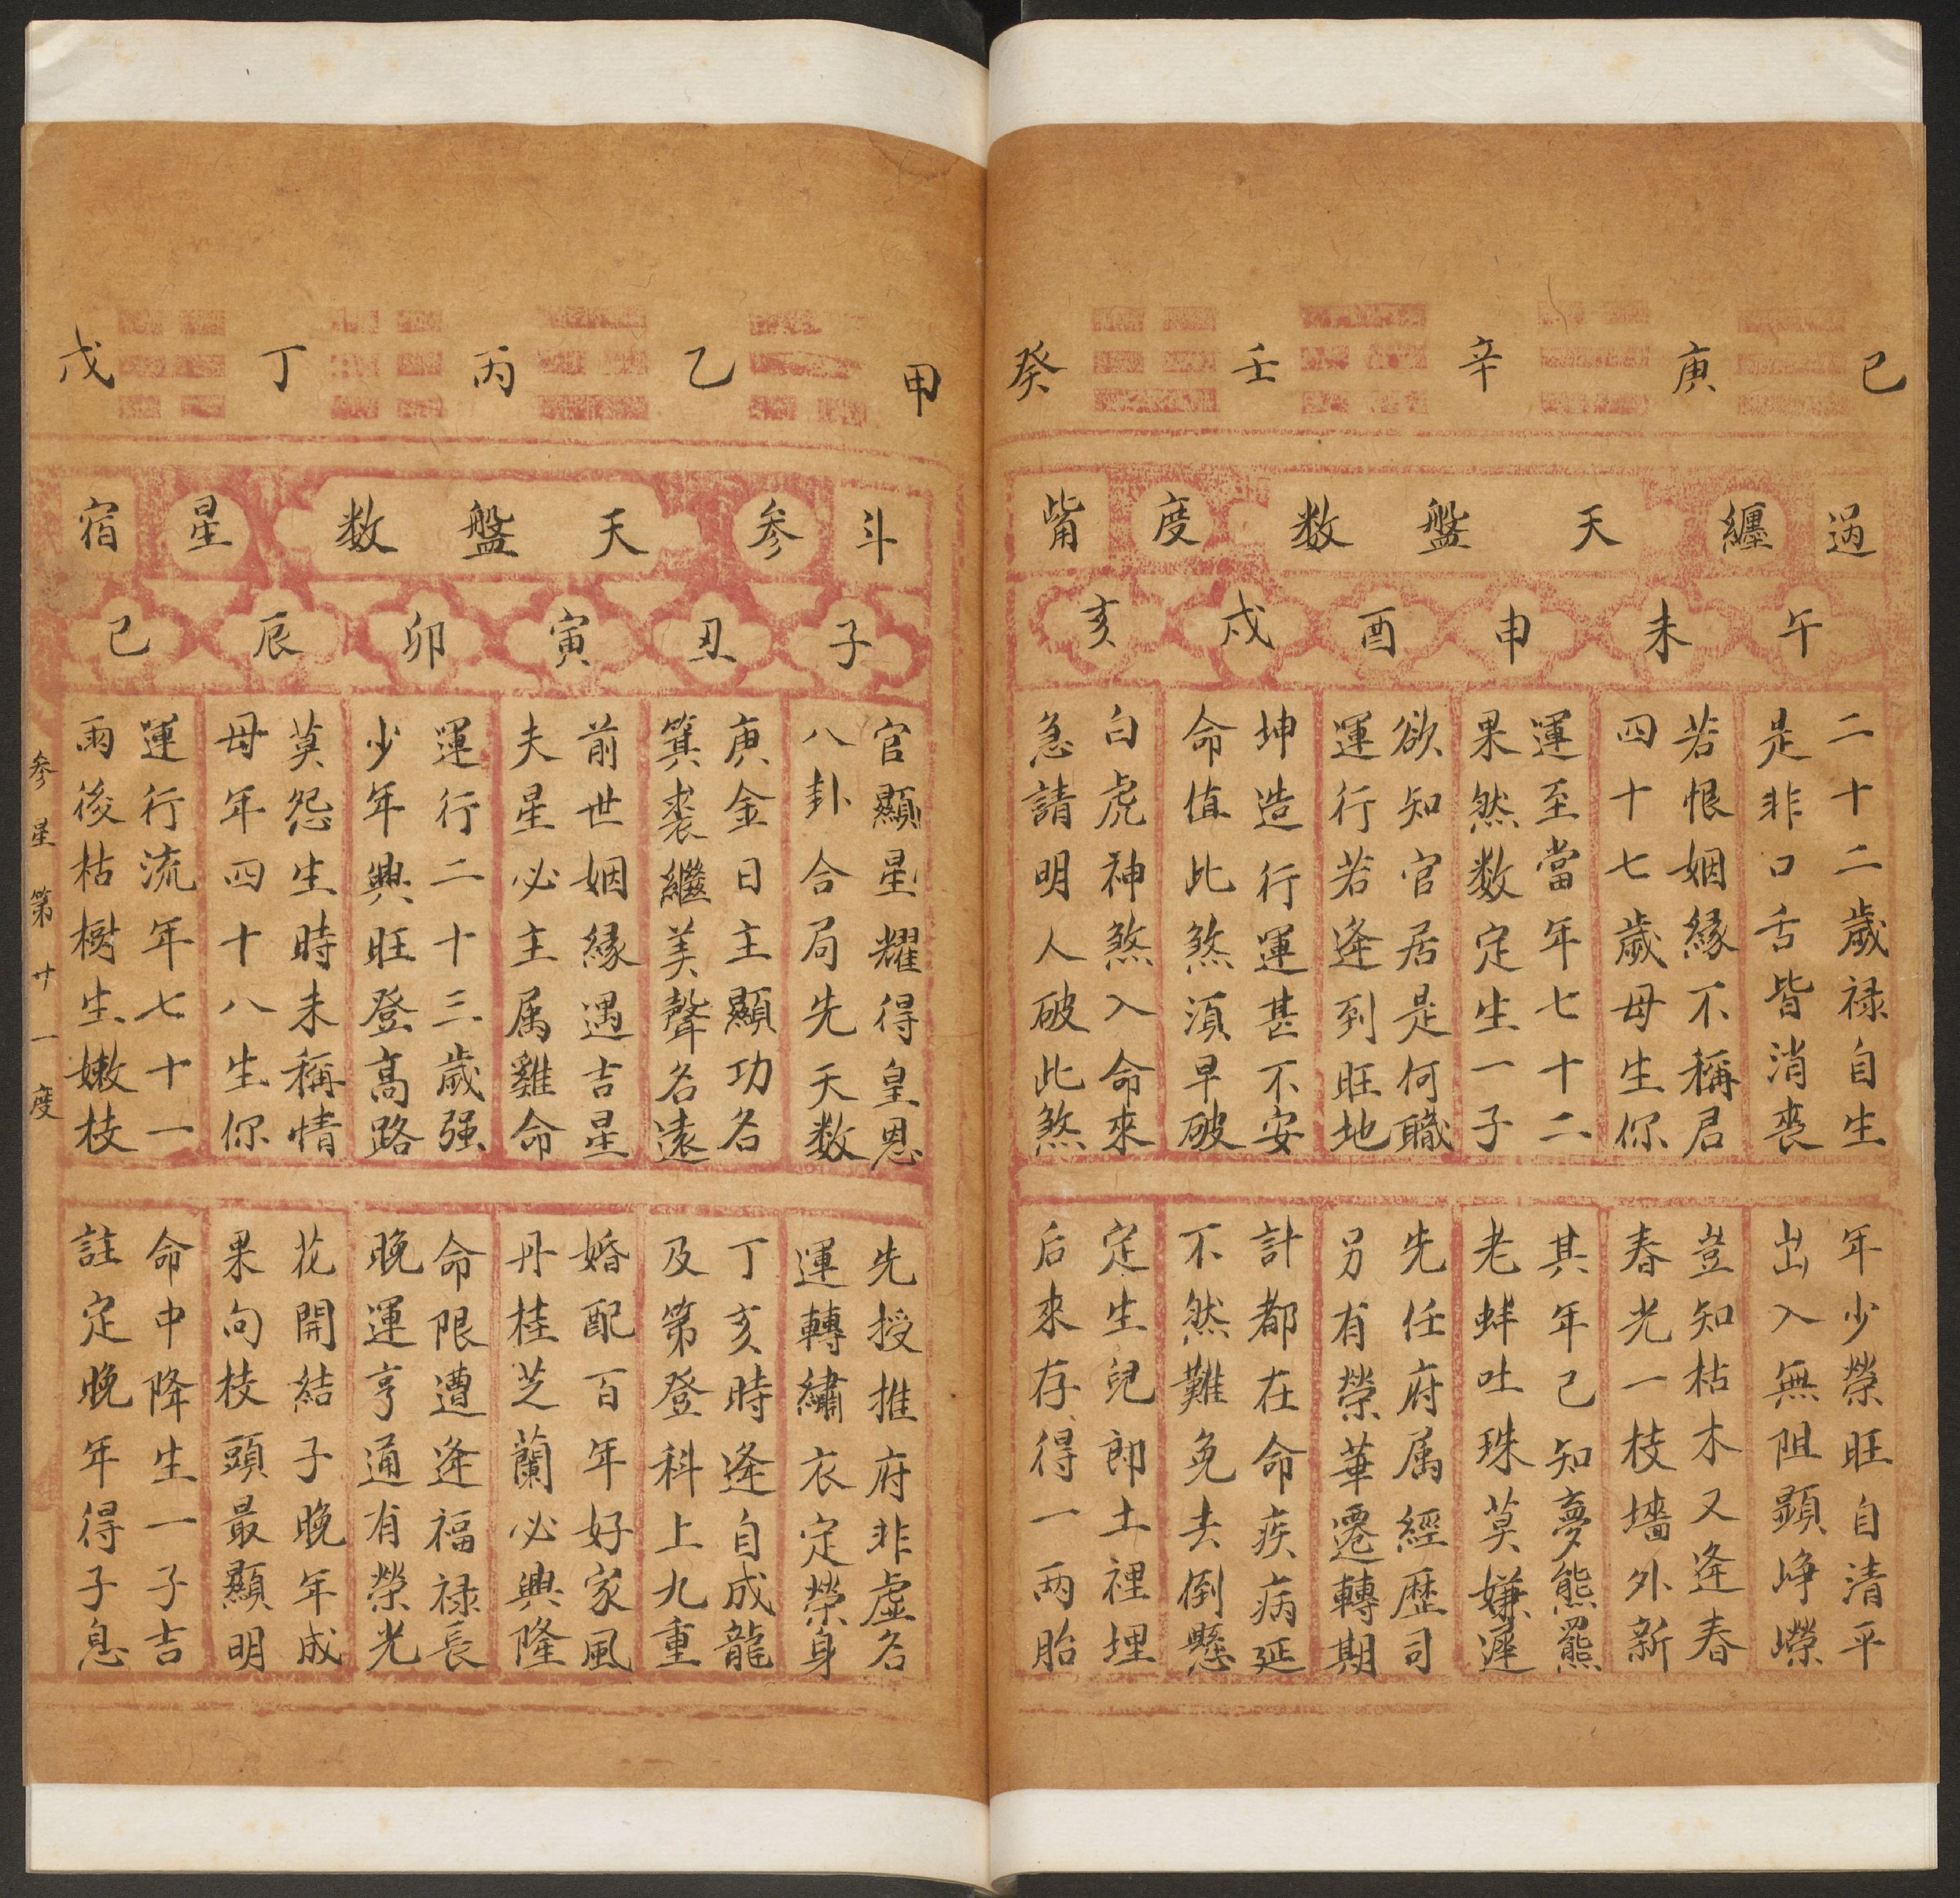 己庚辛壬癸
過纏天盤数度觜
午未申酉戌亥
二十二歲禄自生
是非口舌皆消喪
若恨姻緣不稱君
四十七歲母生你
運至當年七十二
果然数定生一子
欲知官居是何職
運行若逢到旺地
坤造行運甚不安
命值此煞須早破
白虎神煞入命來
急請明人破此煞
年少榮旺自清平
出入無阻顕崢嶸
豈知枯木又逢春
春光一枝墻外新
其年已知夢熊羆
老蚌吐珠莫嫌遲
先任府属經歷司
另有榮華遷轉期
計都在命疾病延
不然難免去倒懸
定生兒郎土裡埋
后來存得一両胎
甲乙丙丁戊
斗参天盤数星宿
子丑寅卯辰巳
官顯星耀得皇恩
八卦合局先天数
庚金日主顯功名
箕裘繼美聲名遠
前世姻緣遇吉星
夫星必主属雞命
運行二十三歲强
少年興旺登高路
莫怨生時未稱情
母年四十八生你
運行流年七十一
雨後枯樹生嫩枝
先授推府非虛名
運轉繡衣定榮身
丁亥時逢自成龍
及第登科上九重
婚配百年好家風
丹桂芝蘭必興隆
命限遭逢福禄長
晚運亨通有榮光
花開結子晚年成
果句枝頭最顯明
命中降生一子吉
註定晚年得子息
参星第廿一度